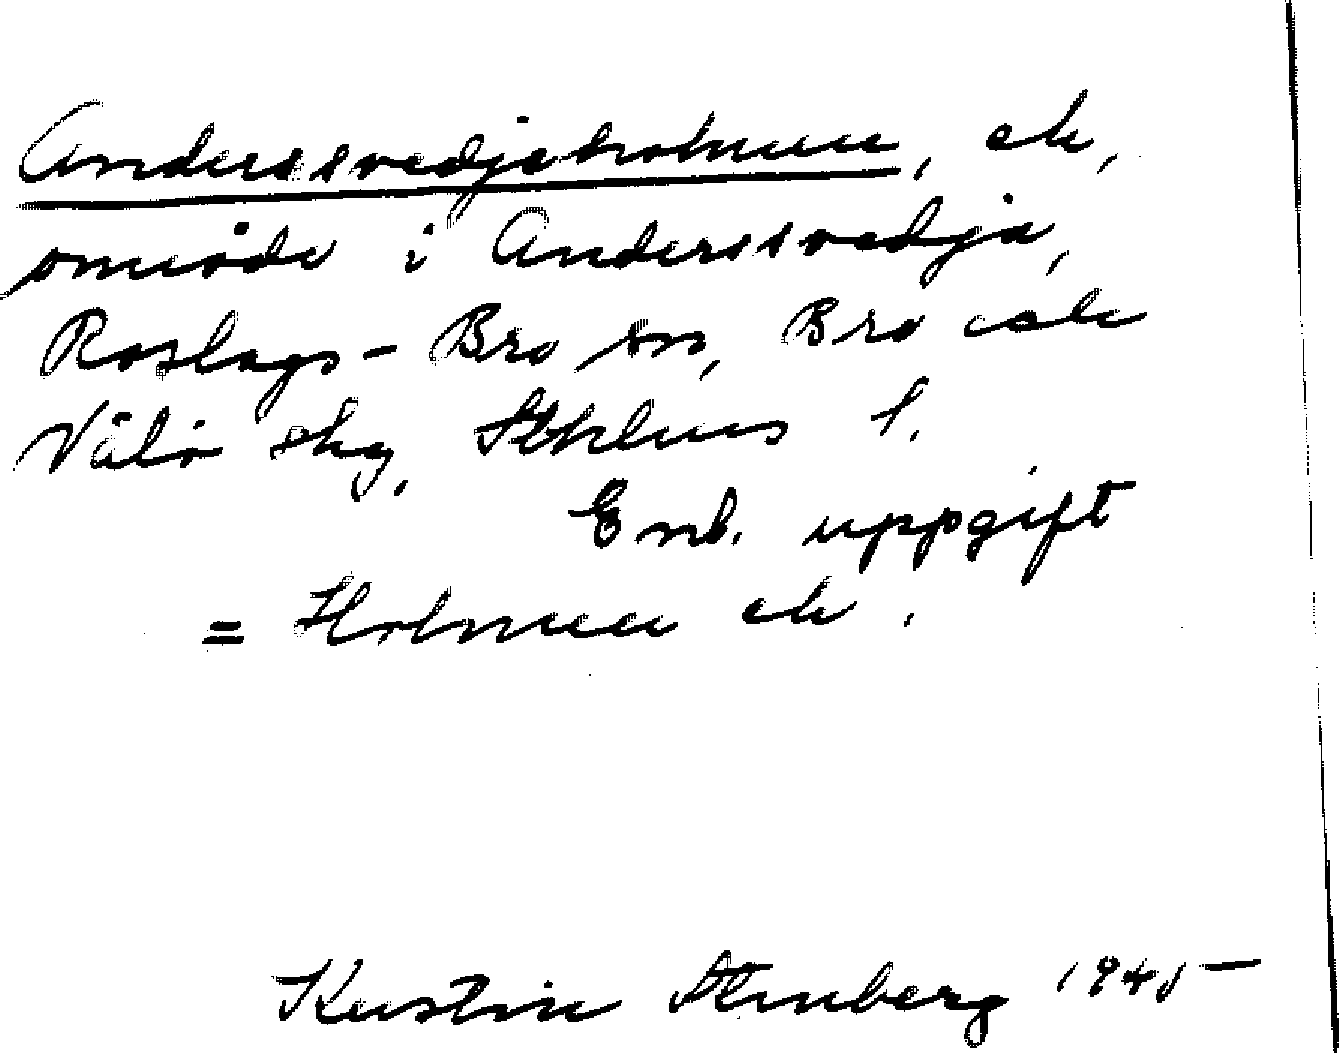 Anderssvedjeholmen, ek,
område i Anderssvedja,
Roslags-Bro sn, Bro och
Vätö skg, Sthlms l.
Enl. uppgift
= Holmen ek.
Kerstin Stenberg 1945